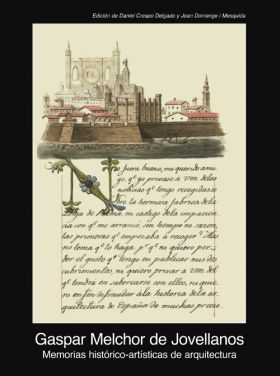 Edición de Daniel Crespo Delgado y Joan Domenge i Mesquida
No fuera bueno, mi querido ami-
go, qe yo privase à Vm. de las
noticias qe tengo recogidas so-
bre la hermosa fabrica de la
Lonja de Palma, en castigo de la impacien-
cia con qe me arranco, sin tiempo ni sazon,
las primeras qe empezaba à recoger? Mas
no tema qe lo haga, pr qe ni quiero per-
der el gusto qe tengo en publicar mis des-
cubrimientos, ni quiero privar a Vm. del
qe tendrá en saborearse con ellos, ni quie-
ro en fin defraudar à la historia de la ar-
quitectura de España de muchas precio
Gaspar Melchor de Jovellanos
Memorias histórico-artísticas de arquitectura